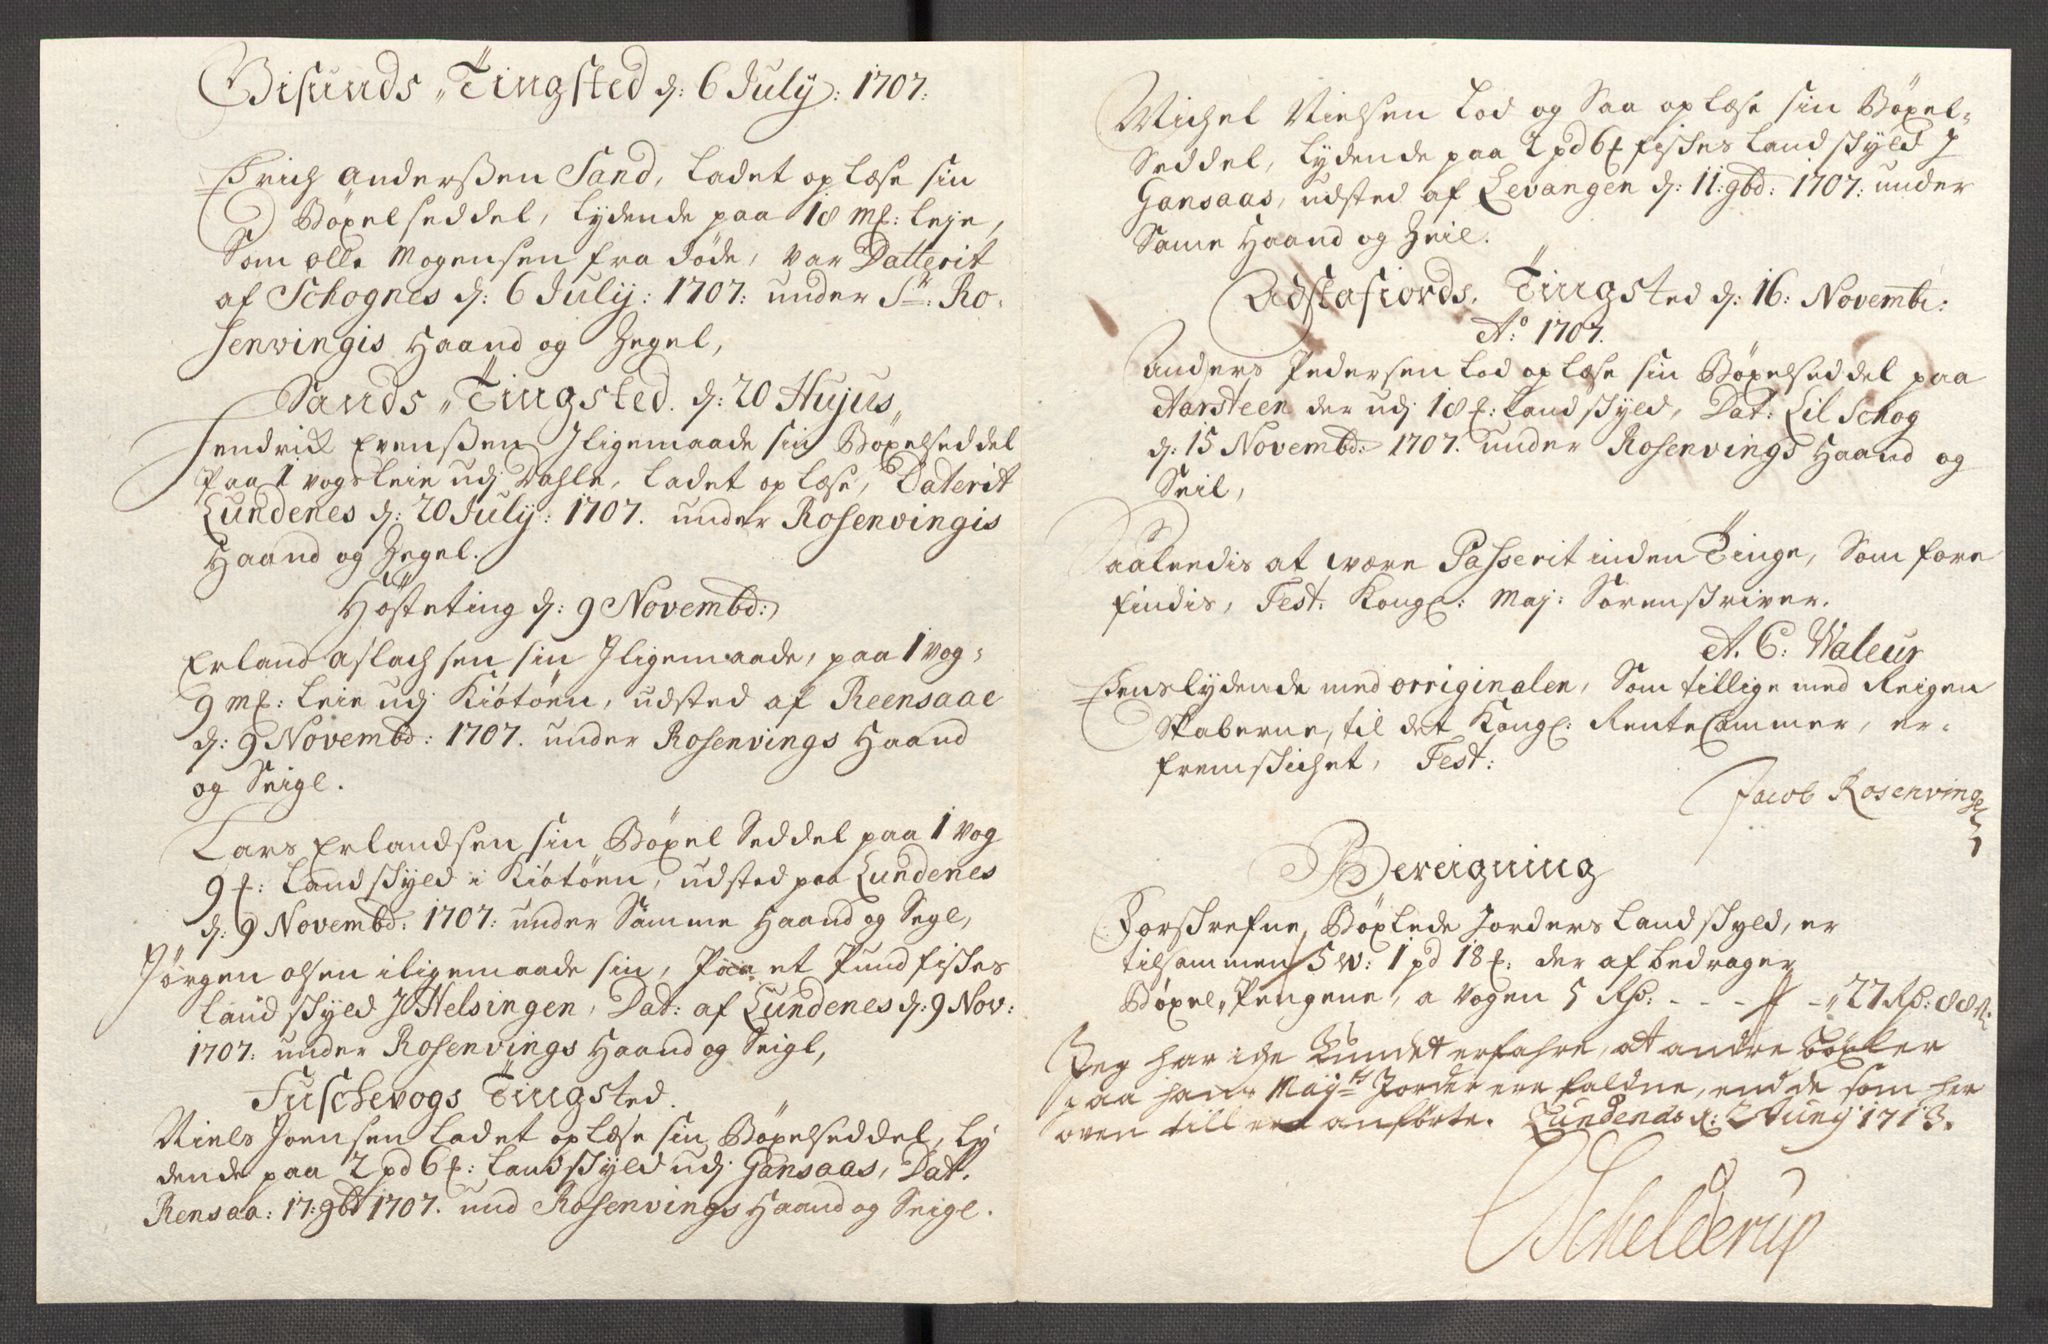 Gisunds Tingsted d: 6 July: 1707:
Erich Anderßen Sand, Ladet op læse sin
Böxelseddel, Lydende paa 18 mk: leje,
Som Olle Mogensen fra döde, var Datterit
af Schognes d: 6 July: 1707: under Sr: Ro-
senvingis Haand og Zegel,
Sands Tingsted. d: 20 Hujus
Hendrik Evenßen Iligemaade sin Böxelseddel
Paa 1 vogs leie udj Dahle, Ladet op læse, Daterit
Lundenes d: 20 July: 1707. under Rosenvingis
Haand og Zegel.
Hösteting d: 9 Novembd:
Erland Aslachsen sin Iligemaade, paa 1 vog-
9 mk: leie udj Kiötöen, udsted af Reensaae
d: 9 Novembd: 1707. under Rosenvings Haand
og Seigl.
Lars Erlandsen sin Böxel Seddel paa 1 Vog
9 ℔: Landskyld i Kiötöen, udsted paa Lundenes
d: 9 Novembd: 1707: under Samme Haand og Segl,
Jörgen Olsen iligemaade sin, Paa et Pund fiskes
Landskyld J Helsingen, Dat: af Lundenes d: 9 Nov:
1707: under Rosenvings Haand og Seigl,
Fuschevogs Tingsted.
Niels Joensen Ladet op læse sin Böxelseddel, Ly
dende paa 2 pd 6 ℔: Landskyld udj Gansaas, Dat.
Rensaa: 17: 9bd 1707. und Rosenvings Haand og Seigl.
Michel Nielsen Lod og Saa op læse sin Böxel-
Seddel, Lydende paa 2 pd 6 ℔ fiskes Landskyld J
Gansaas, udsted af Levangen d: 11: 9bd: 1707: under
Same Haand og Zeil.
Astafiords, Tingsted d: 16: Novembr:
Ao: 1707.
Anders Pedersen Lod op læse sin Böxelseddel paa
Aarsteen der udj 18 ℔: Landskyld, Dat: Lil Schog
d: 15 Novembd: 1707. under Rosenvings Haand og
Seil,
Saaleedis at være Passerit inden Tinge, Som fore
findis, Test: Kongl: May: Sorenskriver.
A. C: Waleur
Eenslydende med orriginalen, Som tillige med Reigen
Skaberne, til det Kongl: Rente Cammer, er
fremskichet, Test:
Jacob Rosenvinge
Bereigning
Forskrefne Böxlede Jorders Landskyld, er
tilsammen 5 w: 1 pd 18 ℔: der af bedrager
Böxel, Pengene, a Vogen 5 Rd: - - - - 27 Rd: 88 s
Jeg har iche kundet erfahre, at andre böxler
paa hans Mayts Jorder ere faldne, end de som her
oven till ere anförte. Lundenes d: 2 Juny 1713.
Schelderup